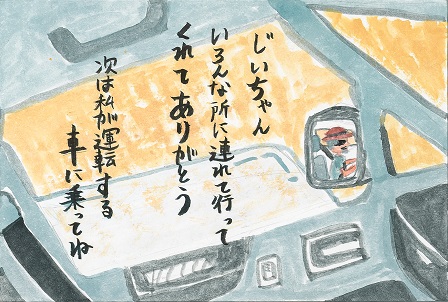 じいちゃん
いろんな所に連れて行って
くれてありがとう
次は私が運転する
車に乗ってね